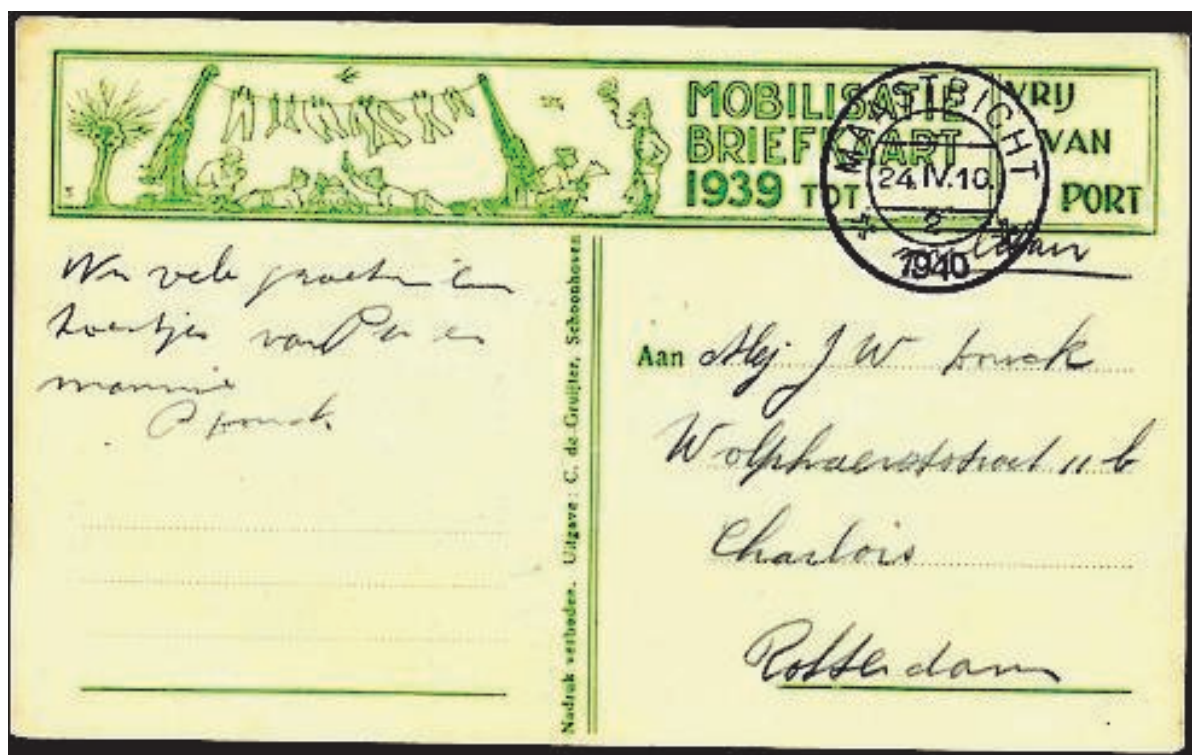 MOBILISATIE
BRIEFKAART
1939 TOT
VRIJ
VAN
PORT
MAASTRICHT
24.IV.10.
2
1940
vele groeten en
van Pa en
mammie
Nadruk verboden. Uitgave: C. de Gruijter, Schoonhoven
Aan Mej. J W
Wolphaertstraat 11 b
Charlois
Rotterdam